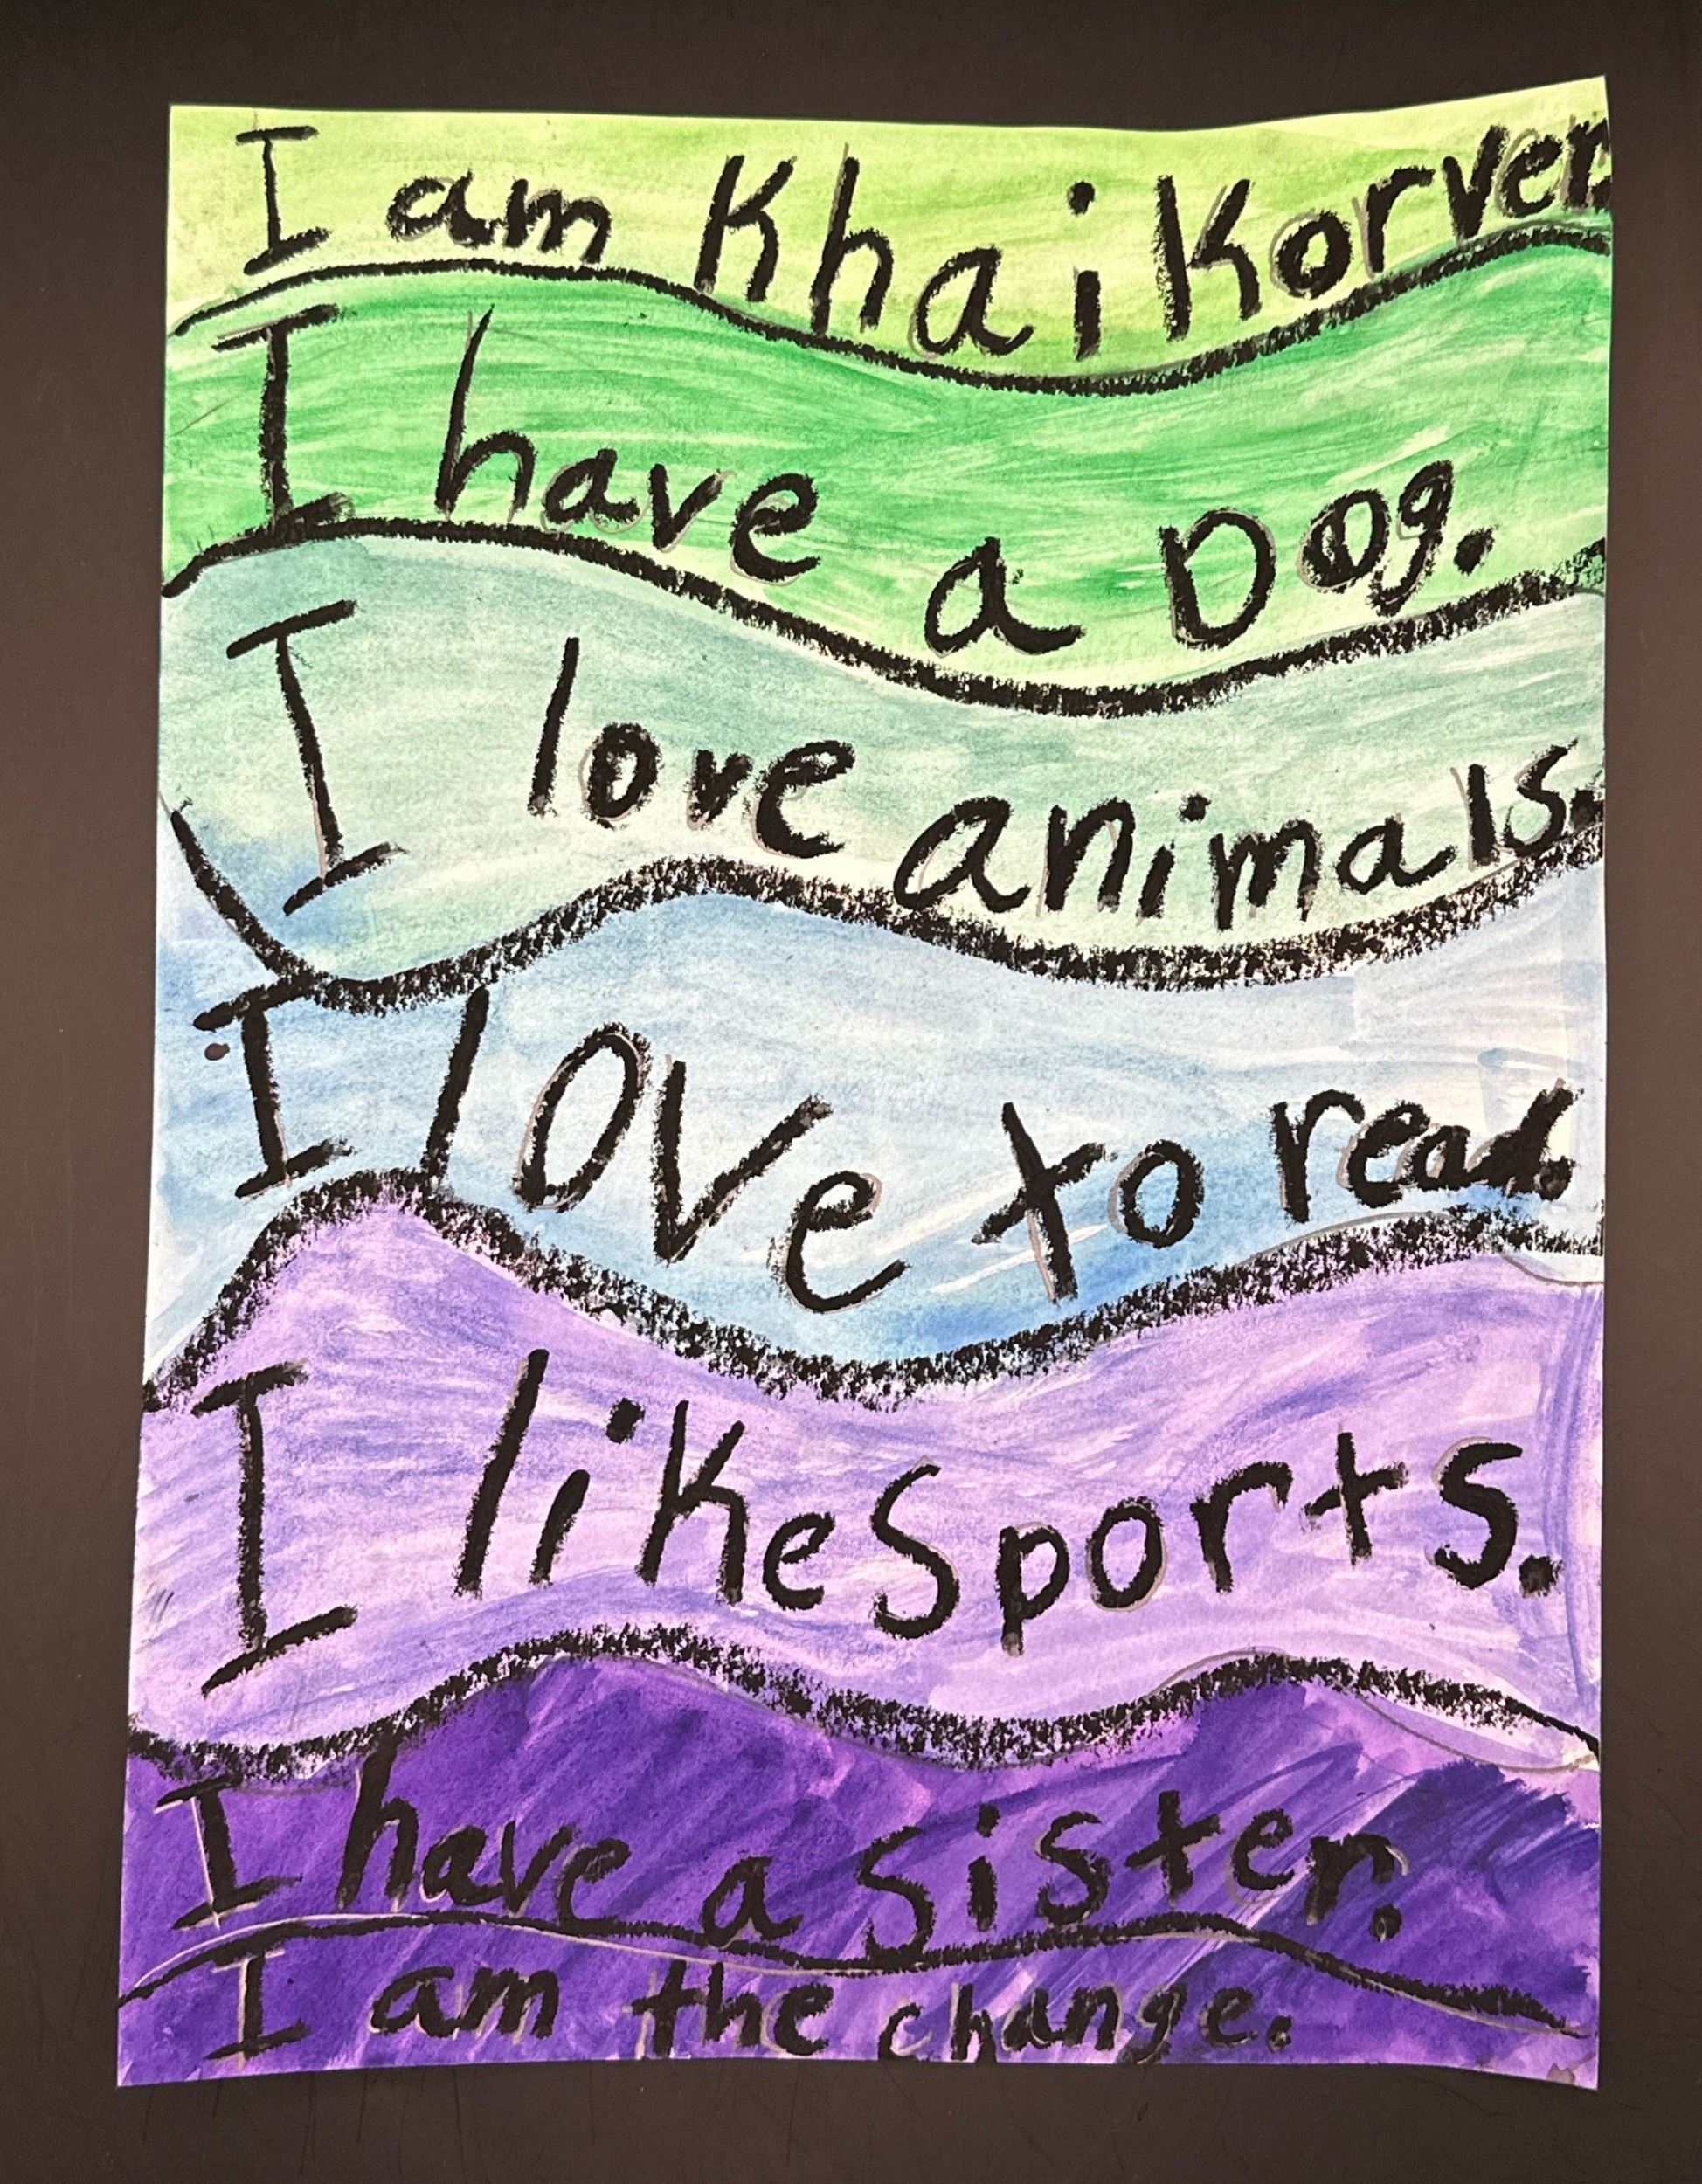 I am Khai Korver.
I have a Dog.
I love animals.
I love to read.
I like Sports.
I have a sister.
I am the change.